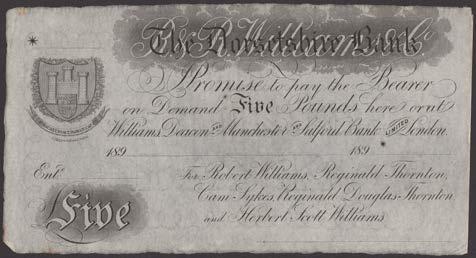 The Dorsetshire Bank
I Promise to pay the Bearer
on Demand Five Pounds here or at
Williams Deacon and Manchester and Salford Bank LIMITED London.
189 189
Entd. For Robert Williams, Reginald Thornton,
Cam Sykes, Reginald Douglas Thornton
Five and Herbert Scott Williams